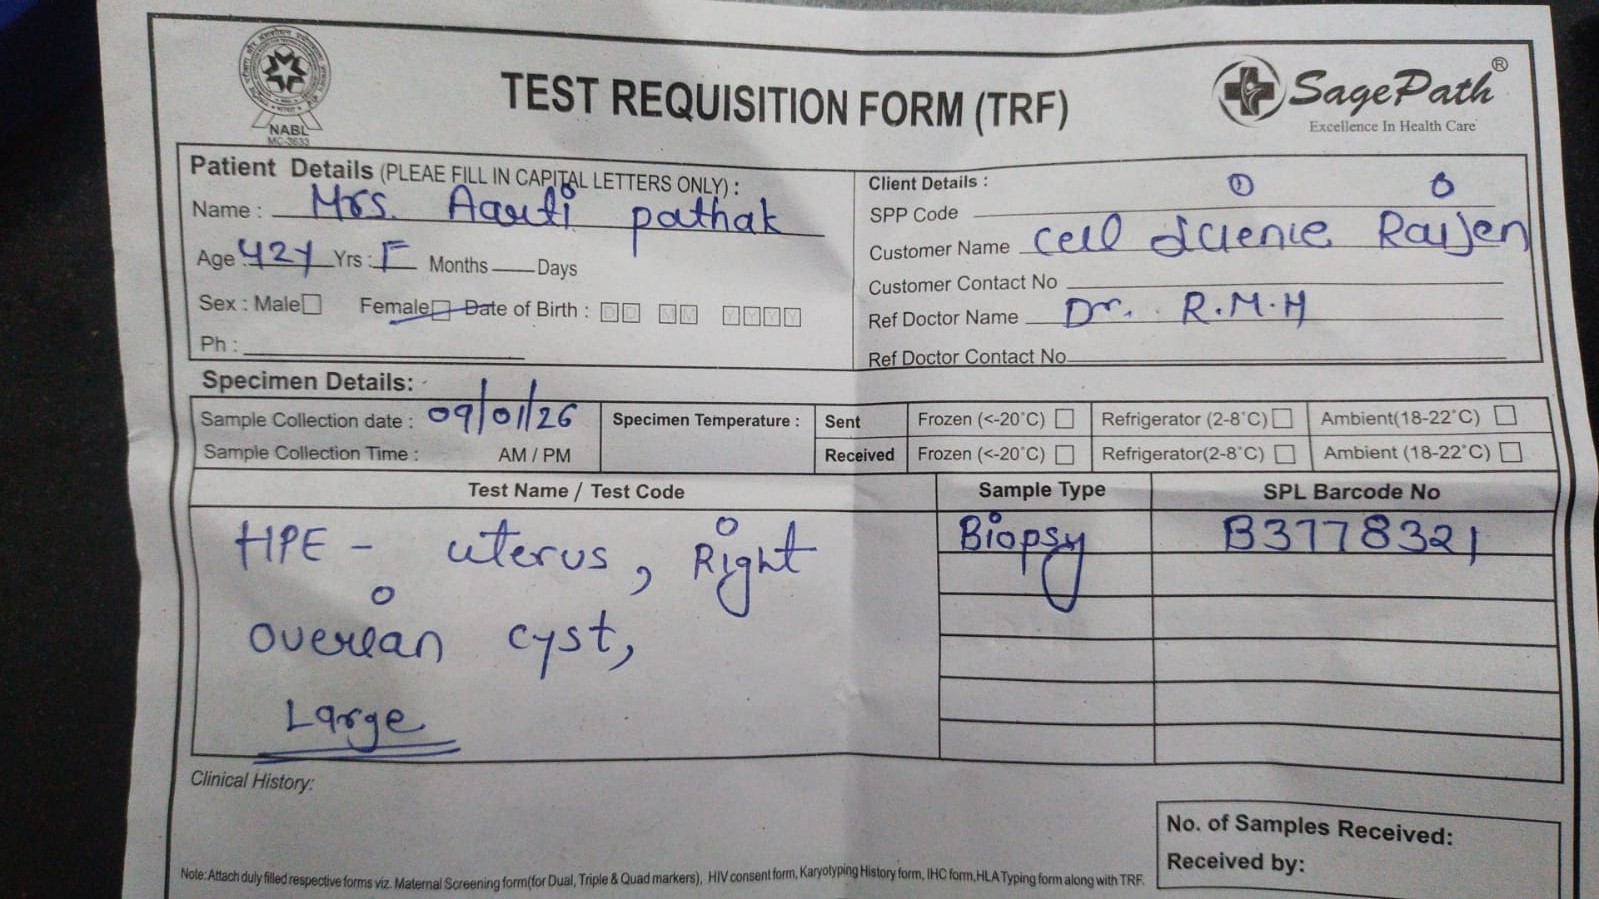 NABL
MC-3633
TEST REQUISITION FORM (TRF)
SagePath®
Excellence In Health Care
Patient Details (PLEAE FILL IN CAPITAL LETTERS ONLY) :
Name : Mrs. Aarti pathak
Age : 42y Yrs : F Months Days
Sex : Male Female Date of Birth : DD MM YYYY
Ph :
Client Details :
SPP Code
Customer Name Cell Science Raijen
Customer Contact No
Ref Doctor Name Dr. R.M.H
Ref Doctor Contact No
Specimen Details: -
Sample Collection date : 09/01/26
Sample Collection Time : AM / PM
Specimen Temperature :
Sent Frozen (<-20°C) Refrigerator (2-8°C) Ambient(18-22°C)
Received Frozen (<-20°C) Refrigerator(2-8°C) Ambient (18-22°C)
Test Name / Test Code Sample Type SPL Barcode No
HPE - uterus, Right Biopsy B3778321
overean cyst,
Large
Clinical History:
No. of Samples Received:
Received by:
Note:Attach duly filled respective forms viz. Maternal Screening form(for Dual, Triple & Quad markers), HIV consent form, Karyotyping History form, IHC form,HLA Typing form along with TRF.